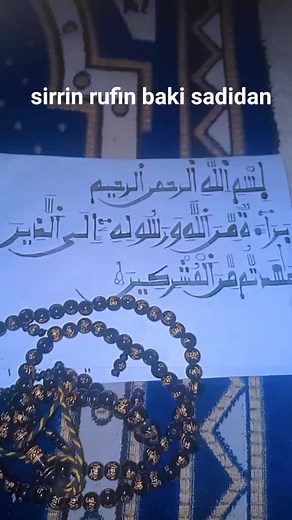 sirrin rufin baki sadidan
بسم الله الرحمن الرحيم
براءة من الله ورسوله إلى الذين
عهدتم من المشركين